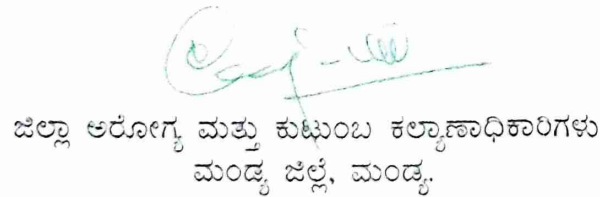 ಜಿಲ್ಲಾ ಆರೋಗ್ಯ ಮತ್ತು ಕುಟುಂಬ ಕಲ್ಯಾಣಾಧಿಕಾರಿಗಳು
ಮಂಡ್ಯ ಜಿಲ್ಲೆ, ಮಂಡ್ಯ.